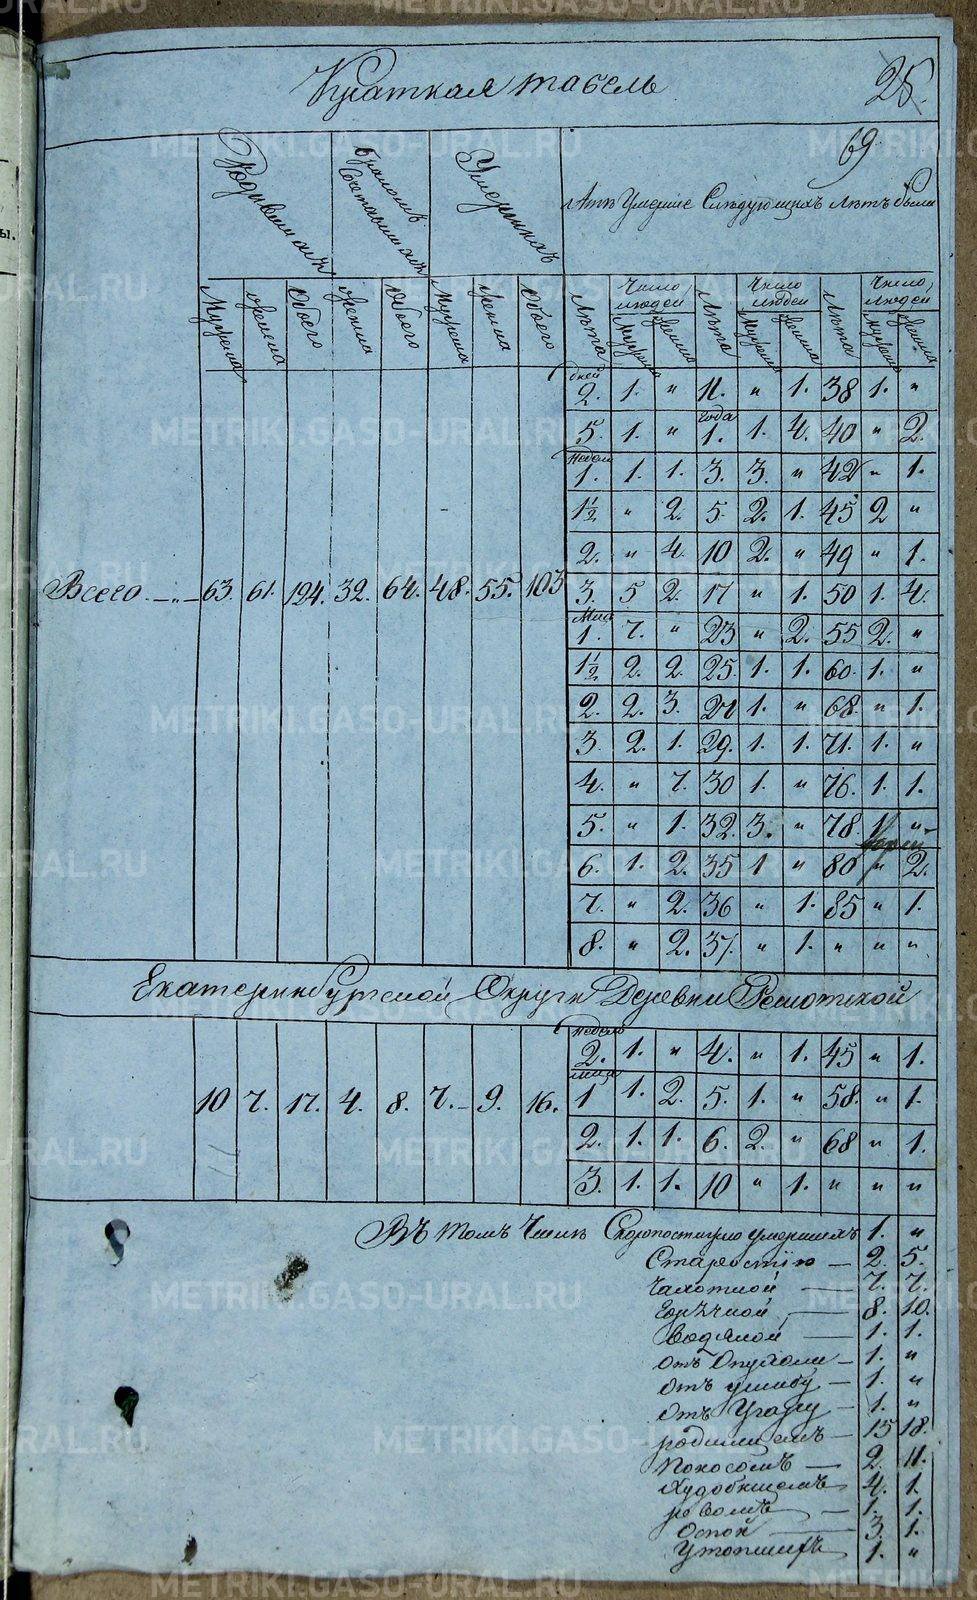 Краткая табель
25.
69
Родившихся
Бракомъ Сочетавшихся
Умершихъ
Лѣта Умершие Слѣдующихъ Лѣтъ были
Мужеска женска Обоего женска Обоего Мужеска женска Обоего Лѣта Число людей Лѣта Число людей Лѣта Число людей
Мужеска женска Мужеска женска Мужеска женска
дней
2. 1. " 11. " 1. 38 1. "
года
5. 1. " 1. 1. 4. 40 " 2.
Недель
1. 1. 1. 3. 3. " 42 " 1.
1½ " 2. 5. 2. 1. 45 2 "
2. " 4. 10 2. " 49 " 1.
Всего 63. 61. 124. 32. 64. 48. 55. 103 3. 5 2. 17 " 1. 50 1. 4.
1. 7. " 23 " 2. 55 2. "
1½ 2. 2. 25. 1. 1. 60. 1. "
2. 2. 3. 27 1. " 68. " 1.
3. 2. 1. 29. 1. 1. 71. 1. "
4. " 7. 30 1. " 76. 1. 1.
5. " 1. 32. 3. " 78. 1. "
6. 1. 2. 35 1 " 80 " 2.
7. " 2. 36 " 1. 85 " 1.
8. " 2. 37. " 1. " " "
Екатеринбургской Округи Деревни
Недель
2. 1. " 4. " 1. 45 " 1.
10 7. 17. 4. 8. 7. 9. 16. 1 1. 2. 5. 1. " 58. " 1.
2. 1. 1. 6. 2. " 68 " 1.
3. 1. 1. 10 " 1. " " "
Въ томъ Числѣ Скоропостижно умершихъ 1. "
Старостію 2. 5.
Чахоткой 7. 7.
Горячкой 8. 10.
Водяной 1. 1.
отъ Опухоли 1. "
отъ ушибу 1. "
отъ Угару 1. "
родимцемъ 15 18.
Поносомъ 2. 11.
4. 1.
1. 1.
Оспой 3. 1.
Утопшихъ 1. "
METRIKI.GASO-URAL.RU